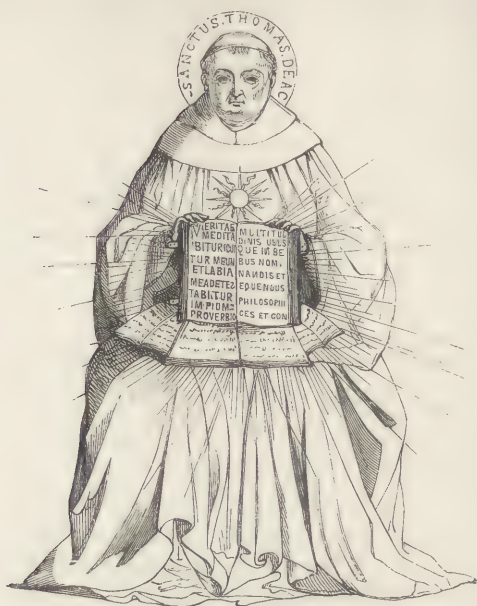 SANCTUS.THOMAS.DEAC
VERITAS
MEDITA
BITUR
TUR MEUM
ET LABIA
MEA DETES
TABITUR
IMPIOM
PROVERB
MLTITU
DINIS USUS
QUE IN BE
BUS NOM.
NANDIS ET
EQUENDUS
PHILOSOPHI
CES ET CON